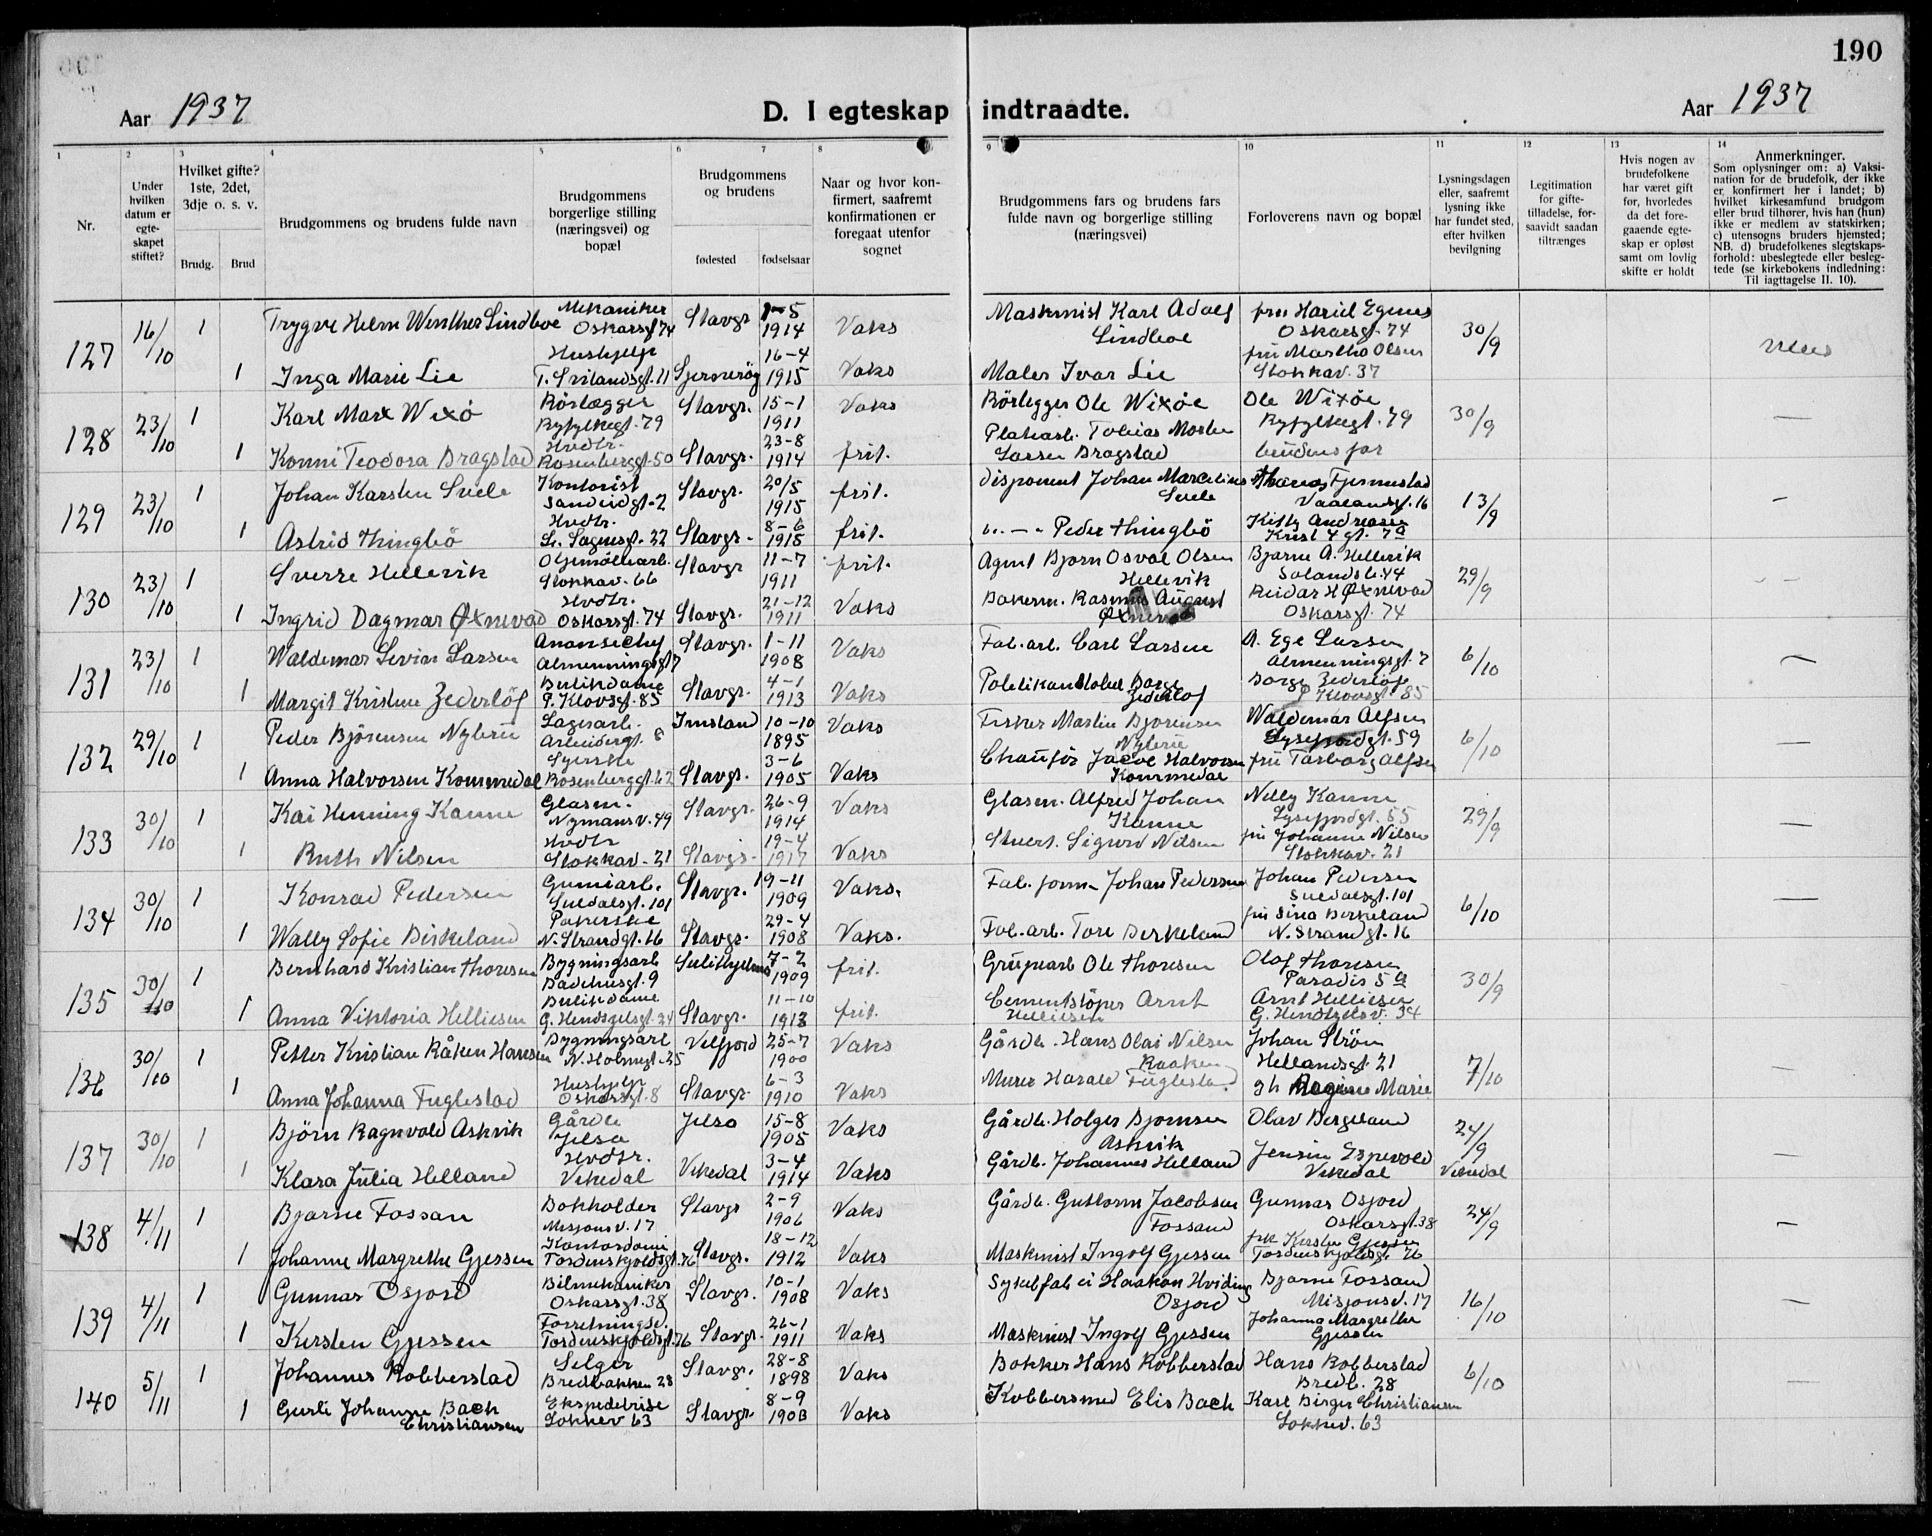 190
Aar 1937 D. I egteskap indtraadte. Aar 1937
1 2 3 4 5 6 7 8 9 10 11 12 13 14
Nr.
Under hvilken datum er egte-skapet stiftet?
Hvilket gifte? 1ste, 2det, 3dje o. s. v.
Brudg. Brud
Brudgommens og brudens fulde navn
Brudgommens borgerlige stilling (næringsvei) og bopæl
Brudgommens og brudens
fødested fødselsaar
Naar og hvor kon-firmert, saafremt konfirmationen er foregaat utenfor sognet
Brudgommens fars og brudens fars fulde navn og borgerlige stilling (næringsvei)
Forloverens navn og bopæl
Lysningsdagen eller, saafremt lysning ikke har fundet sted, efter hvilken bevilgning
Legitimation for gifte-tilladelse, for-saavidt saadan tiltrænges
Hvis nogen av brudefolkene har været gift før, hvorledes da det fore-gaaende egte-skap er opløst samt om lovlig skifte er holdt
Anmerkninger.
Som oplysninger om: a) Vaksi-nation for de brudefolk, der ikke er konfirmert her i landet; b) hvilket kirkesamfund brudgom eller brud tilhører, hvis han (hun) ikke er medlem av statskirken; c) utensogns bruders hjemsted; NB. d) brudefolkenes slegtskaps-forhold: ubeslegtede eller besleg-tede (se kirkebokens indledning: Til iagttagelse II. 10).
127 16/10 1 Trygve Helm Winther Lindboe Mekaniker Oskarsgt 74 Stavgr 1-5 1914 Vaks Maskinist Karl Adolf Lindboe Oskarsgt. 74 30/9
1 Inga Marie Lie Hushjelp 11 16-4 1915 Vaks Maler Ivar Lie fru Martha Olsen Stokkav. 37
128 23/10 1 Karl Marx Wixø Rørlægger Ryfylkegt. 79 Stavgr. 15-1 1911 Vaks Rörlegger Ole Wixöe Ole Wixöe Ryfylkegt. 79 30/9 —
1 Konni Teodora Bragstad Hvdtr. Rosenberggt. 50 Stavgr. 23-8 1914 frit. Tobias Larsen Bragstad brudens far
129 23/10 1 Johan Karsten Svele Kontorist Sandeidgt. 2 Stavgr. 20/5 1915 frit. Disponent Johan Marcelius Svele Vaalandsgt. 16 13/9 —
1 Astrid Thingbö Hvdtr. 22 Stavgr. 8-6 1915 frit. Peder Thingbö Kitty Andreasen
130 23/10 1 Sverre Hellevik Stokkav. 66 Stavgr 11-7 1911 frit. Agent Bjorn Osval Olsen Hellevik Bjarne A. Hellevik 29/9 —
1 Ingrid Dagmar Øxnevad Hvdtr. Oskarsgt. 74 Stavgr. 21-12 1911 Vaks Bakerm. Rasmus August Øxnevad Reidar H Øxnevad Oskarsgt. 74
131 23/10 1 Waldemar Sevin Larsen Almenningsgt 7 Stavgr. 1-11 1908 Vaks Fab. arb. Carl Larsen A. Ege Larsen Almenningsgt. 7 6/10 —
1 Margit Kristine Zederlöf Butikdame P. Klovsgt. 85 Stavgr. 4-1 1913 Vaks Borge Zederlof Borge Zederlöf P Klovsgt. 85
132 29/10 1 Peder Björensen Nybrü Lagerarb. 8 Imsland 10-10 1895 Vaks Fisker Martin Bjorensen Nybrü Waldemar Alfsen Lysefjordgt. 59 6/10 —
1 Anna Halvorsen Kommedal Syerske Rosenberggt. 62 Stavgr. 3-6 1905 Vaks Chaufør Jacob Halvorsen Kommedal fru Torborg Alfsen
133 30/10 1 Kai Henning Kanne Glasm. Nymansv. 49 Stavgr. 26-9 1914 Vaks Glasm. Alfred Johan Kanne Nelly Kanne Lysefjordgt. 55 29/9 —
1 Ruth Nilsen Hvdtr Stokkav. 21 Stavgr. 19-4 1917 Vaks Stuert. Sigurd Nilsen fru Johanne Nilsen Stokkav. 21
134 30/10 1 Konrad Pedersen Gumiarb. Suldalsgt. 101 Stavgr. 19-11 1909 Vaks. Fab. form. Johan Pedersen Johan Pedersen Suldalsgt. 101 6/10 —
1 Wally Sofie Birkeland Pakerske N. Strandgt. 16 Stavgr. 29-4 1908 Vaks. Fab. arb. Tore Birkeland fru Sina Birkeland N. Strandgt. 16
135 30/10 1 Bernhard Kristian Thoresen Bygningsarb Badehusgt. 9 Sulitjelma 7-2 1909 frit. Grubearb Ole Thoresen Olaf Thoresen Paradis 5 a 30/9 —
1 Anna Viktoria Helliesen Butikdame 34 Stavgr. 11-10 1913 frit. Cementstöper Arnt Helliesen Arnt Helliesen 34
136 30/10 1 Petter Kristian Råken Hansen Bygningsarb N. Holmegt. 25 Velfjord 25-7 1900 Vaks Gårdb. Hans Olai Nilsen Raaken Johan Ström Hellandsgt. 21 7/10 —
1 Anna Johanna Fuglestad Hushjelp Oskarsgt. 8 Stavgr. 6-3 1910 Vaks Murer Harald Fuglestad Marie
137 30/10 1 Björn Ragnvald Askvik Gårdb Jelsa Jelsa 15-8 1905 Vaks Gårdb. Holger Bjornsen Askvik Olav Bergeland 24/9 —
1 Klara Julia Helland Hvdtr. Vikedal Vikedal 3-4 1914 Vaks Gårdb. Johannes Helland Jensin Espevold Vikedal Vikedal
138 4/11 1 Bjarne Fossan Bokholder Misjonsv. 17 Stavgr 2-9 1906 Vaks Gårdb. Guttorm Jacobsen Fossand Gunnar Osjord Oskarsgt. 38 24/9 —
1 Johanne Margrethe Gjessen Kontordame Tordenskjoldsgt. 76 Stavgr. 18-12 1912 Vaks Maskinist Ingolf Gjessen frk Kirsten Gjessen Tordenskjoldsgt 76
139 4/11 1 Gunnar Osjord Bilmekaniker Oskarsgt. 38 Stavgr. 10-1 1908 Vaks Haakon Hviding Osjord Bjarne Fossand Misjonsv. 17 16/10 —
1 Kirsten Gjessen Forretningsd. Tordenskjoldsgt. 76 Stavgr. 26-1 1911 Vaks Maskinist Ingolf Gjessen Johanna Margrethe Gjessen
140 5/11 1 Johannes Robberstad Selger Bredbakken 28 Stavgr. 28-8 1898 Vaks Bokker Hans Robberstad Hans Robberstad Bredb. 28 6/10 —
1 Gurli Johanne Bach Christiansen Ekspeditrise Lokkev 63 Stavgr. 8-9 1903 Vaks Kobbersmed Elis Bach Karl Birger Christiansen Lokkev. 63